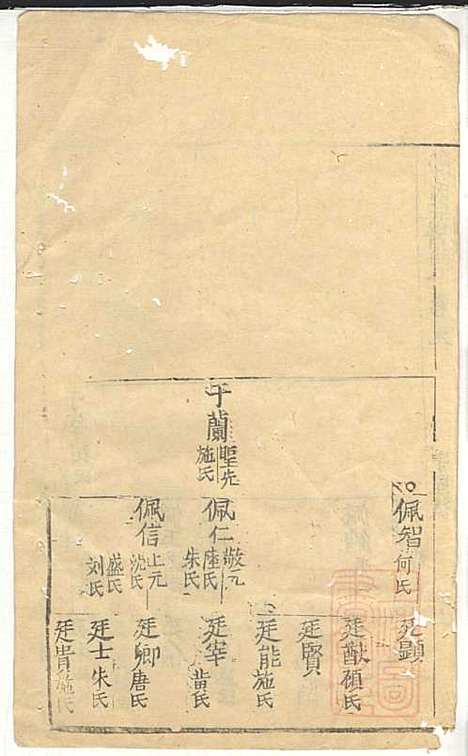 于蘭
聖先
施氏
佩智何氏
佩仁
敬元
陸氏
朱氏
佩信
上元
沈氏
盛氏
刘氏
廷顯
廷猷顧氏
廷賢
廷能施氏
廷宰
黄氏
廷卿唐氏
廷士朱氏
廷貴施氏